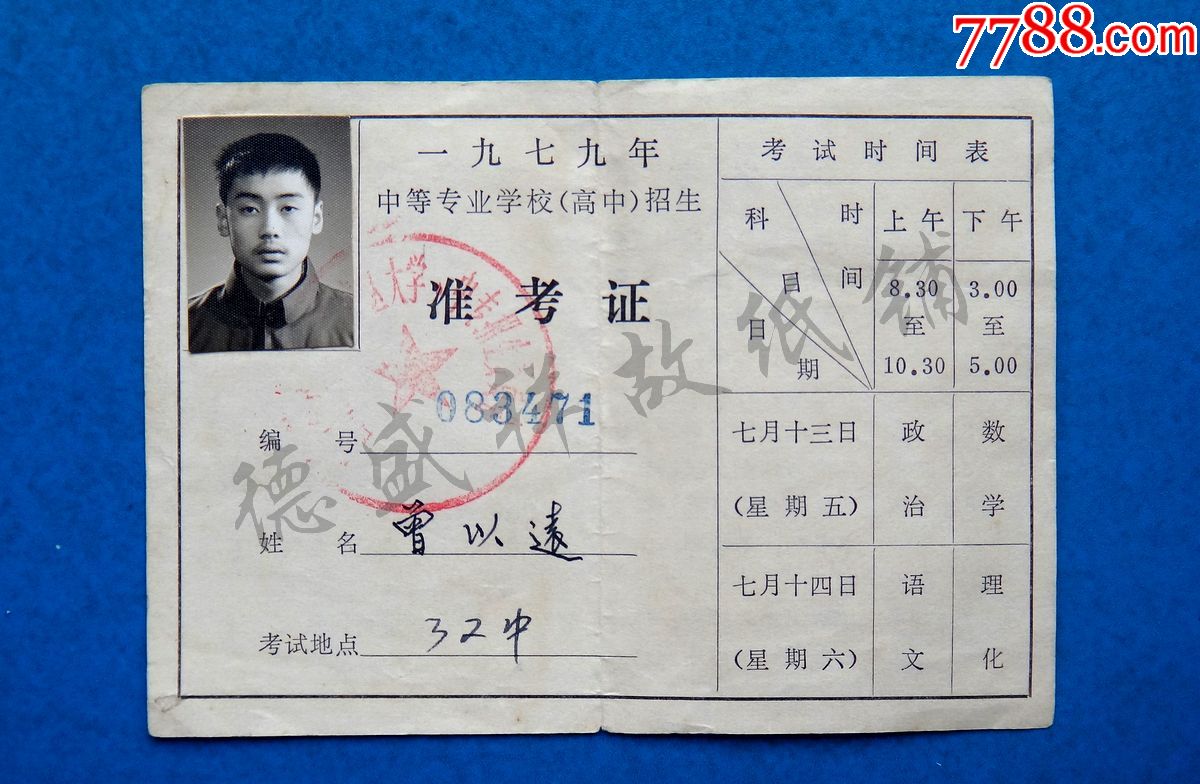 7788.com
一九七九年
中等专业学校(高中)招生
准考证
编号 083471
姓名 曾以遠
考试地点 32中
考试时间表
科目 时间 日期
上午 下午
8.30 3.00
至 至
10.30 5.00
七月十三日 政 数
(星期五) 治 学
七月十四日 语 理
(星期六) 文 化
德盛祥故纸铺